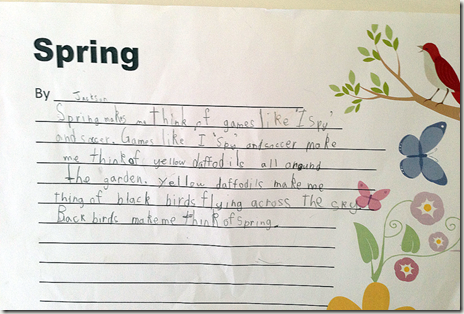 Spring
By Jackson
Spring makes me think of games like 'I spy'
and soccer. Games like I 'spy' and soccer make
me think of yellow daffodils all around
the garden. Yellow daffodils make me
thing of black birds flying across the sky.
Back birds make me think of spring.